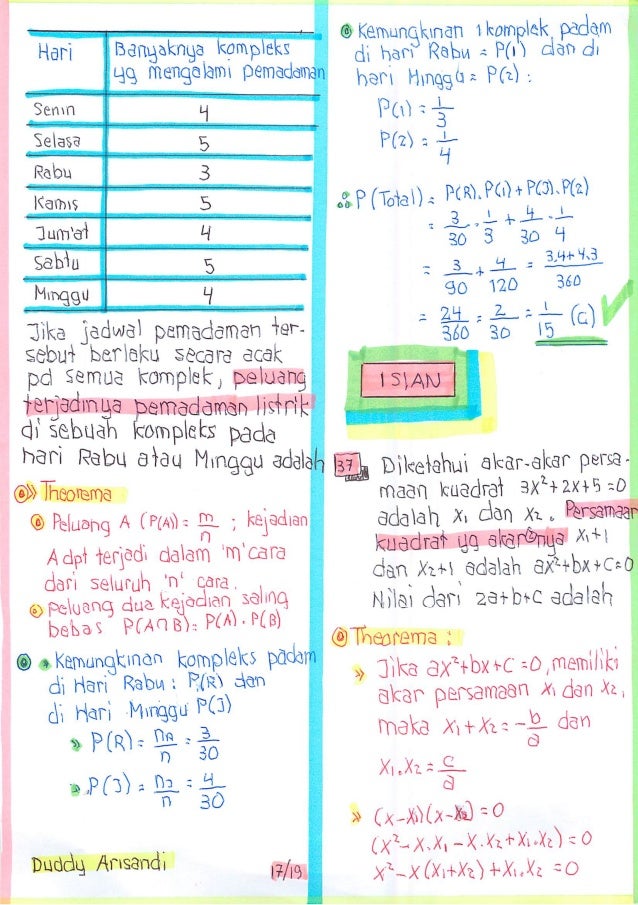 Hari
Banyaknya kompleks
yg mengalami pemadaman
Senin 4
Selasa 5
Rabu 3
Kamis 5
Jum'at 4
Sabtu 5
Minggu 4
Jika jadwal pemadaman ter-
sebut berlaku secara acak
pd semua komplek, peluang
terjadinya pemadaman listrik
di sebuah kompleks pada
hari Rabu atau Minggu adalah
Theorema
Peluang A (P(A)) = m/n ; kejadian
A dpt terjadi dalam 'm' cara
dari seluruh 'n' cara.
peluang dua kejadian saling
bebas P(A∩B) = P(A) . P(B)
Kemungkinan kompleks padam
di Hari Rabu : P(R) dan
di Hari Minggu P(J)
P(R) = nR/n = 3/30
P(J) = nJ/n = 4/30
Duddy Arisandi
17/19
Kemungkinan 1 komplek padam
di hari Rabu = P(1) dan di
hari Minggu = P(2) :
P(1) = 1/3
P(2) = 1/4
∴ P (Total) = P(R). P(1) + P(J). P(2)
= 3/30 . 1/3 + 4/30 . 1/4
= 3/90 + 4/120 = 3.4+4.3/360
= 24/360 = 2/30 = 1/15 (C)
ISIAN
37 Diketahui akar-akar persa-
maan kuadrat 3x²+2x+5=0
adalah x₁ dan x₂. Persamaan
kuadrat yg akarnya x₁+1
dan x₂+1 adalah ax²+bx+c=0
Nilai dari 2a+b+c adalah
Theorema :
Jika ax²+bx+c=0, memiliki
akar persamaan x₁ dan x₂,
maka x₁+x₂ = -b/a dan
x₁.x₂ = c/a
(x-x₁)(x-x₂) = 0
(x²-x.x₁-x.x₂+x₁.x₂) = 0
x²-x(x₁+x₂)+x₁.x₂ = 0